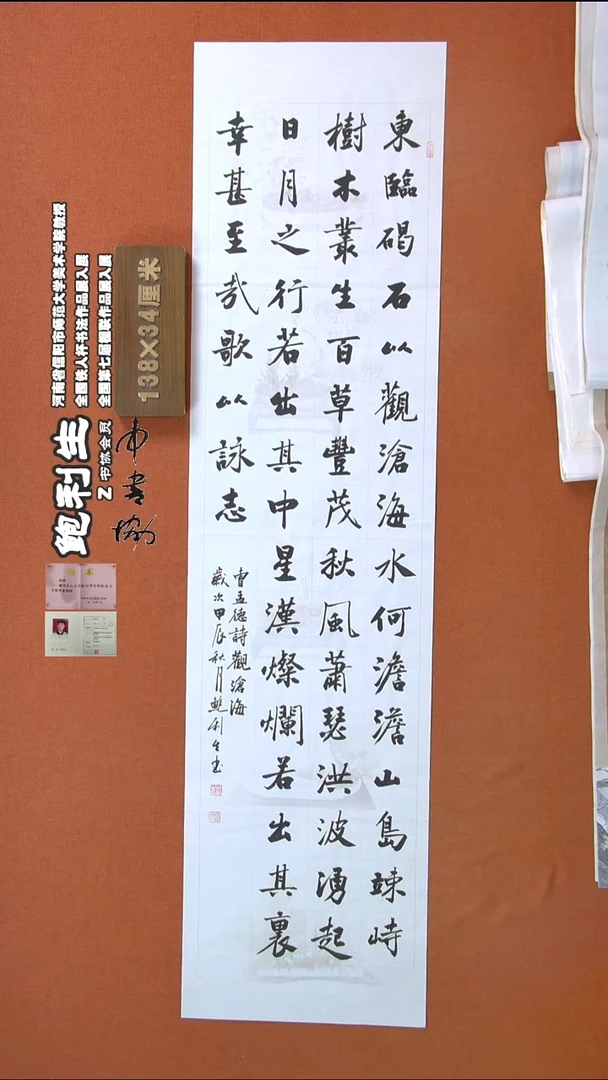 東臨碣石以觀滄海水何澹澹山島竦峙
樹木叢生百草豐茂秋風蕭瑟洪波湧起
日月之行若出其中星漢燦爛若出其裏
幸甚至哉歌以詠志
曹孟德詩觀滄海
歲次甲辰秋月鲍利生书
138×34厘米
河南省信阳市师范大学美术学院教授
全国铁人杯书法作品展入展
全国第七届楹联作品展入展
鲍利生
Z书协会员
中书协